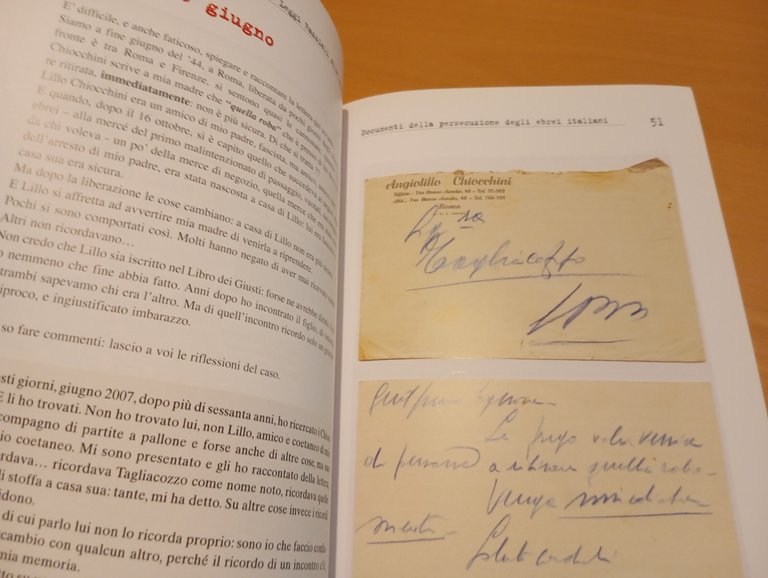 Leggi Razziali
giugno
E' difficile, e anche faticoso, spiegare e raccontare la lettera qui
Siamo a fine giugno del '44, a Roma, liberata da pochi giorni
fronte è tra Roma e Firenze, si sentono quasi le cannonate
Chiocchini scrive a mia madre che "quella roba" che è presso di
re ritirata, immediatamente: non è più sicura. Di che si tratta
Lillo Chiocchini era un amico di mio padre, fascista, ma amico
E quando, dopo il 16 ottobre, si è capito quello che succedeva
ebrei – alla mercé del primo malintenzionato di passaggio, vuotati
da chi voleva - un po' della merce di negozio, quella merce che
dell'arresto di mio padre, era stata nascosta a casa di Lillo: lui era
casa sua era sicura.
Ma dopo la liberazione le cose cambiano: a casa di Lillo non era più
E Lillo si affretta ad avvertire mia madre di venirla a riprendere.
Pochi si sono comportati così. Molti hanno negato di aver mai ricevuto
Altri non ricordavano…
Non credo che Lillo sia iscritto nel Libro dei Giusti: forse ne avrebbe diritto
nemmeno che fine abbia fatto. Anni dopo ho incontrato il figlio, di
trambi sapevamo chi era l'altro. Ma di quell'incontro ricordo solo un
ciproco, e ingiustificato imbarazzo.
so fare commenti: lascio a voi le riflessioni del caso.
esti giorni, giugno 2007, dopo più di sessanta anni, ho ricercato i
E li ho trovati. Non ho trovato lui, non Lillo, amico e coetaneo di
compagno di partite a pallone e forse anche di altre cose, ma
io coetaneo. Mi sono presentato e gli ho raccontato della lettera,
rdava… ricordava Tagliacozzo come nome noto, ricordava quelle
di stoffa a casa sua: tante, mi ha detto. Su altre cose invece i ricordi
idono.
di cui parlo lui non lo ricorda proprio: sono io che faccio
cambio con qualcun altro, perché il ricordo di un incontro c'è,
mia memoria.
Documenti della persecuzione degli ebrei italiani 51
Angiolillo Chiocchini
Roma
Sig.ra
Tagliacozzo
S.P.M.
Gentilissima Signora
La prego voler venire
di persona a ritirare quella roba.
Venga immediata
mente.
Saluti cordiali